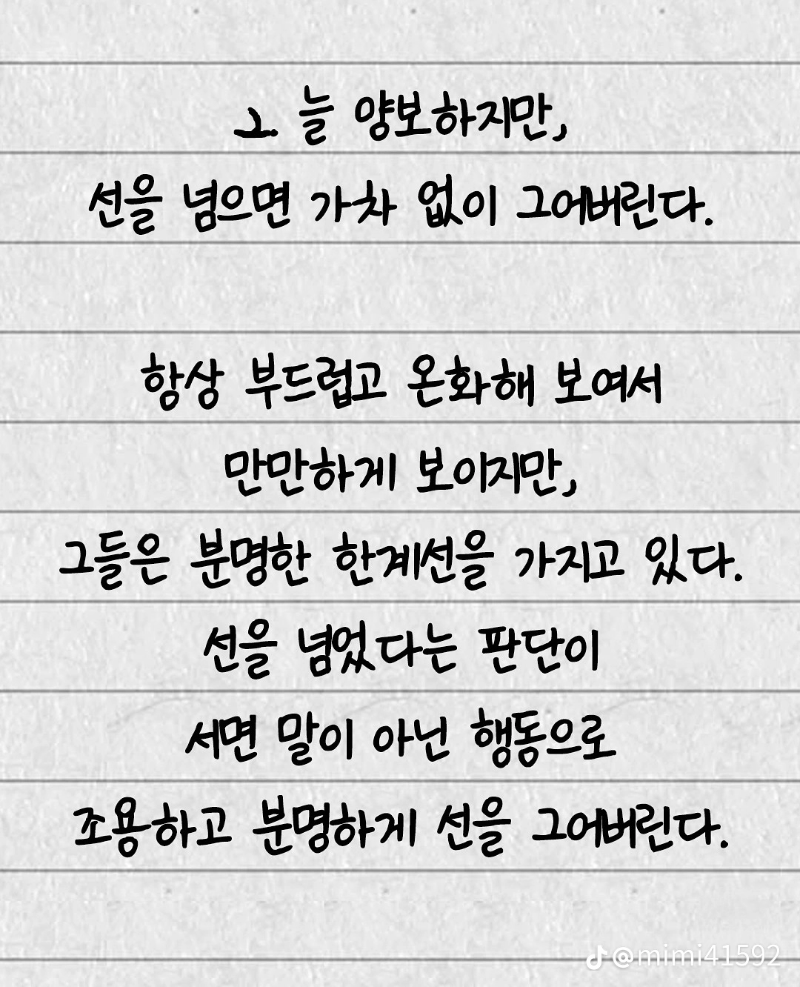 그. 늘 양보하지만,
선을 넘으면 가차 없이 그어버린다.
항상 부드럽고 온화해 보여서
만만하게 보이지만,
그들은 분명한 한계선을 가지고 있다.
선을 넘었다는 판단이
서면 말이 아닌 행동으로
조용하고 분명하게 선을 그어버린다.
@mimi41592